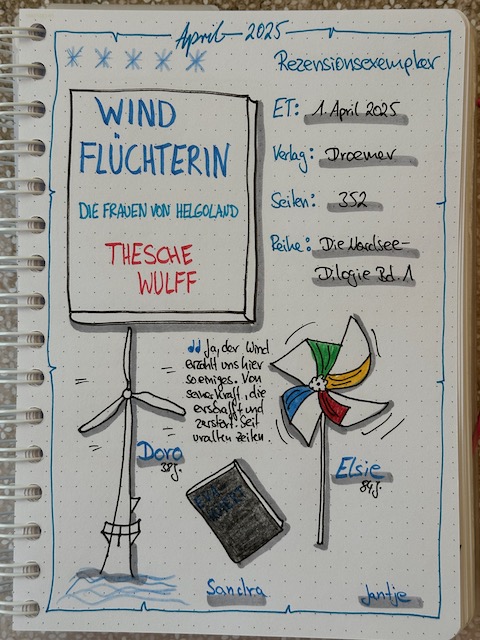 April 2025
Rezensionsexemplar
WIND
FLÜCHTERIN
DIE FRAUEN VON HELGOLAND
THESCHE
WULFF
ET: 1. April 2025
Verlag: Droemer
Seiten: 352
Reihe: Die Nordsee-
Dilogie Bd. 1
„Ja, der Wind
erzählt uns hier
so einiges. Von
seiner Kraft, die
erschafft und
zerstört. Seit
uralten Zeiten.
Doro
38J.
Elsie
84J.
Sandra
Jantje